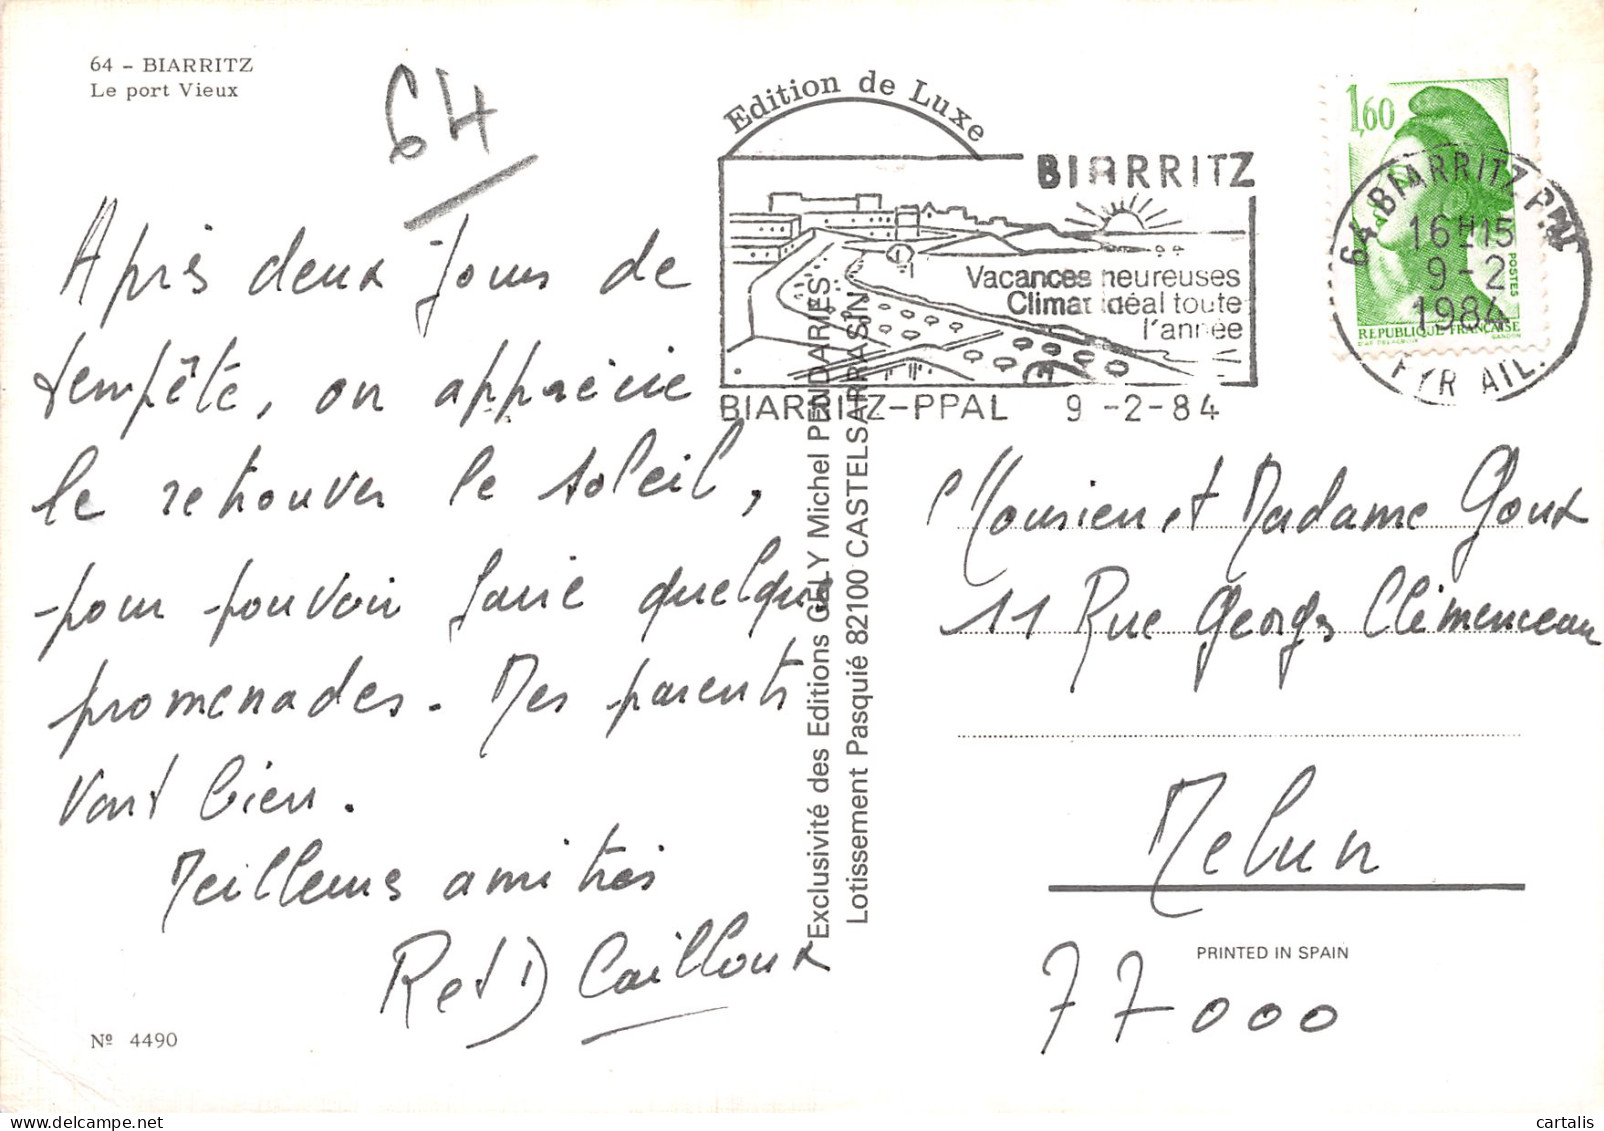 64 - BIARRITZ
Le port Vieux
64
Edition de Luxe
BIARRITZ
Vacances heureuses
Climat idéal toute
l'année
BIARRITZ-PPAL 9 -2-84
1,60
POSTES
REPUBLIQUE FRANÇAISE
64 BIARRITZ PPAL
16H15
9-2
1984
PYR ATL.
Après deux jours de
tempête, on apprécie
le retrouver le soleil,
pour pouvoir faire quelques
promenades. Mes parents
vont bien.
Meilleures amitiés
R et D Cailloux
Exclusivité des Editions GELY Michel PENDARIES
Lotissement Pasquié 82100 CASTELSARRASIN
Monsieur et Madame Goux
11 Rue Georges Clémenceau
Melun
77000
PRINTED IN SPAIN
Nº 4490
cartalis
www.delcampe.net